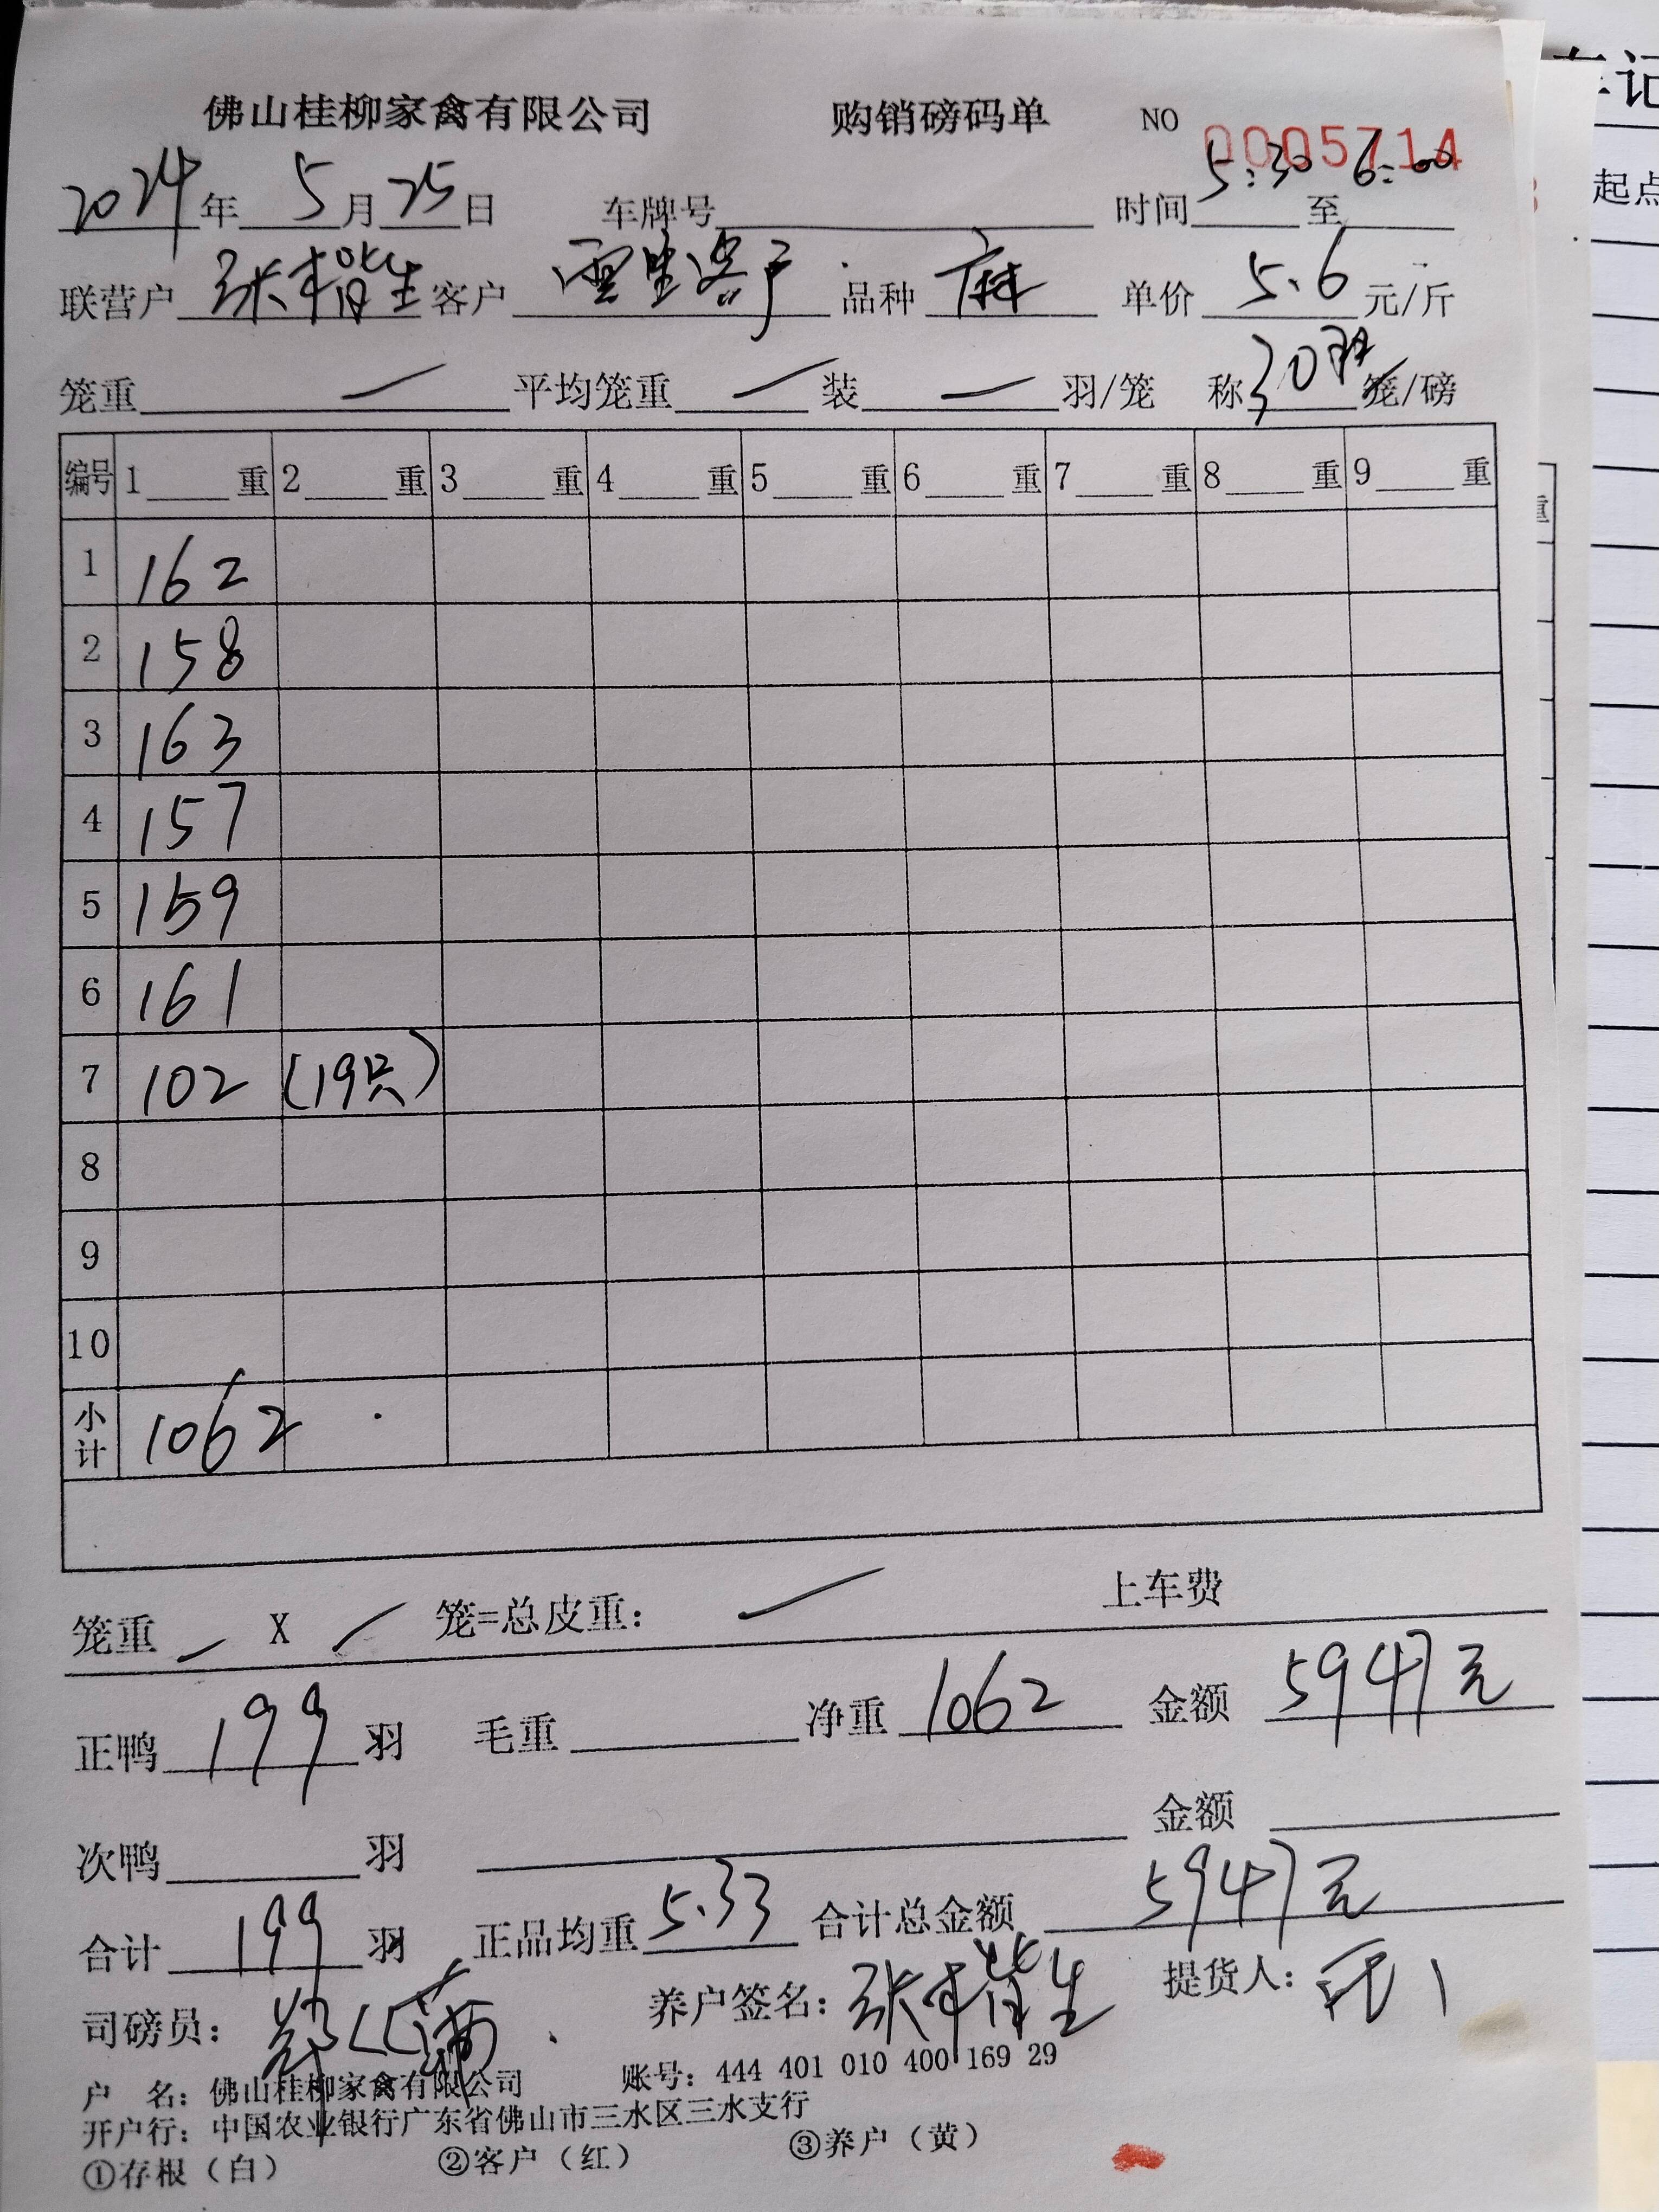 佛山桂柳家禽有限公司 购销磅码单 NO 0005714
2024年 5月25日 车牌号 时间 5:30 至 6:00
联营户 张楷生 客户 零星客户 品种 麻 单价 5.6 元/斤
笼重 — 平均笼重 — 装 — 羽/笼 称 30羽 笼/磅
编号 1 重 2 重 3 重 4 重 5 重 6 重 7 重 8 重 9 重
1 162
2 158
3 163
4 157
5 159
6 161
7 102 (19只)
8
9
10
小计 1062
笼重 — X — 笼=总皮重: — 上车费
正鸭 199 羽 毛重 净重 1062 金额 5947元
次鸭 羽 金额
合计 199 羽 正品均重 5.33 合计总金额 5947元
司磅员: 养户签名: 张楷生 提货人:
户 名: 佛山桂柳家禽有限公司 账号: 444 401 010 400 169 29
开户行: 中国农业银行广东省佛山市三水区三水支行
①存根(白) ②客户(红) ③养户(黄)
起点